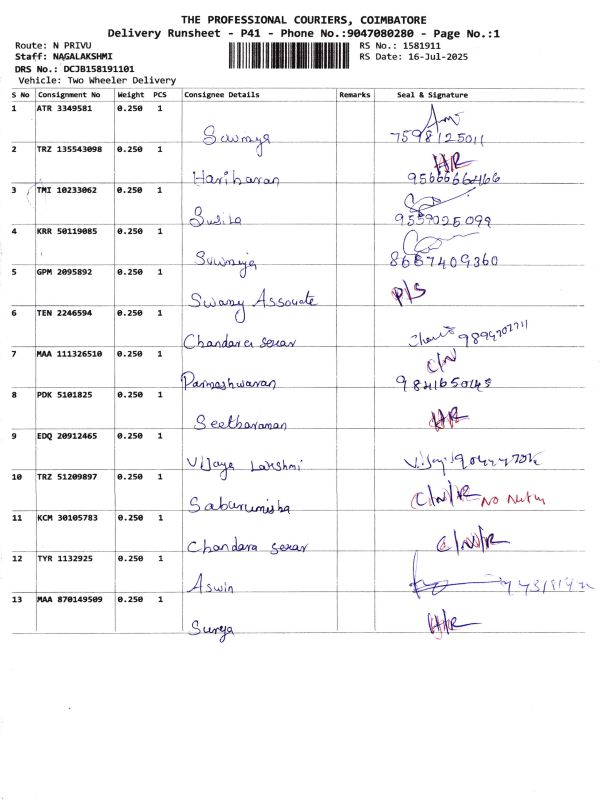 THE PROFESSIONAL COURIERS, COIMBATORE
Delivery Runsheet - P41 - Phone No.:9047080280 - Page No.:1
Route: N PRIVU RS No.: 1581911
Staff: NAGALAKSHMI RS Date: 16-Jul-2025
DRS No.: DCJB158191101
Vehicle: Two Wheeler Delivery
S No Consignment No Weight PCS Consignee Details Remarks Seal & Signature
1 ATR 3349581 0.250 1
Sowmya 7598125011
2 TRZ 135543098 0.250 1 H/R
Hariharan 9566666466
3 TMI 10233062 0.250 1
Susila 9559025099
4 KRR 50119085 0.250 1
Sowmiya 8667409360
5 GPM 2095892 0.250 1 P/S
Swamy Associate
6 TEN 2246594 0.250 1
Chandara sekar
7 MAA 111326510 0.250 1 C/N
Parmashwaran 9841650145
8 PDK 5101825 0.250 1 H/R
Seetharaman
9 EDQ 20912465 0.250 1
Vijaya Lakshmi
10 TRZ 51209897 0.250 1 C/N/R
Saburunisha
11 KCM 30105783 0.250 1 C/N/R
Chandara sekar
12 TYR 1132925 0.250 1
Aswin
13 MAA 870149509 0.250 1 H/R
Surya